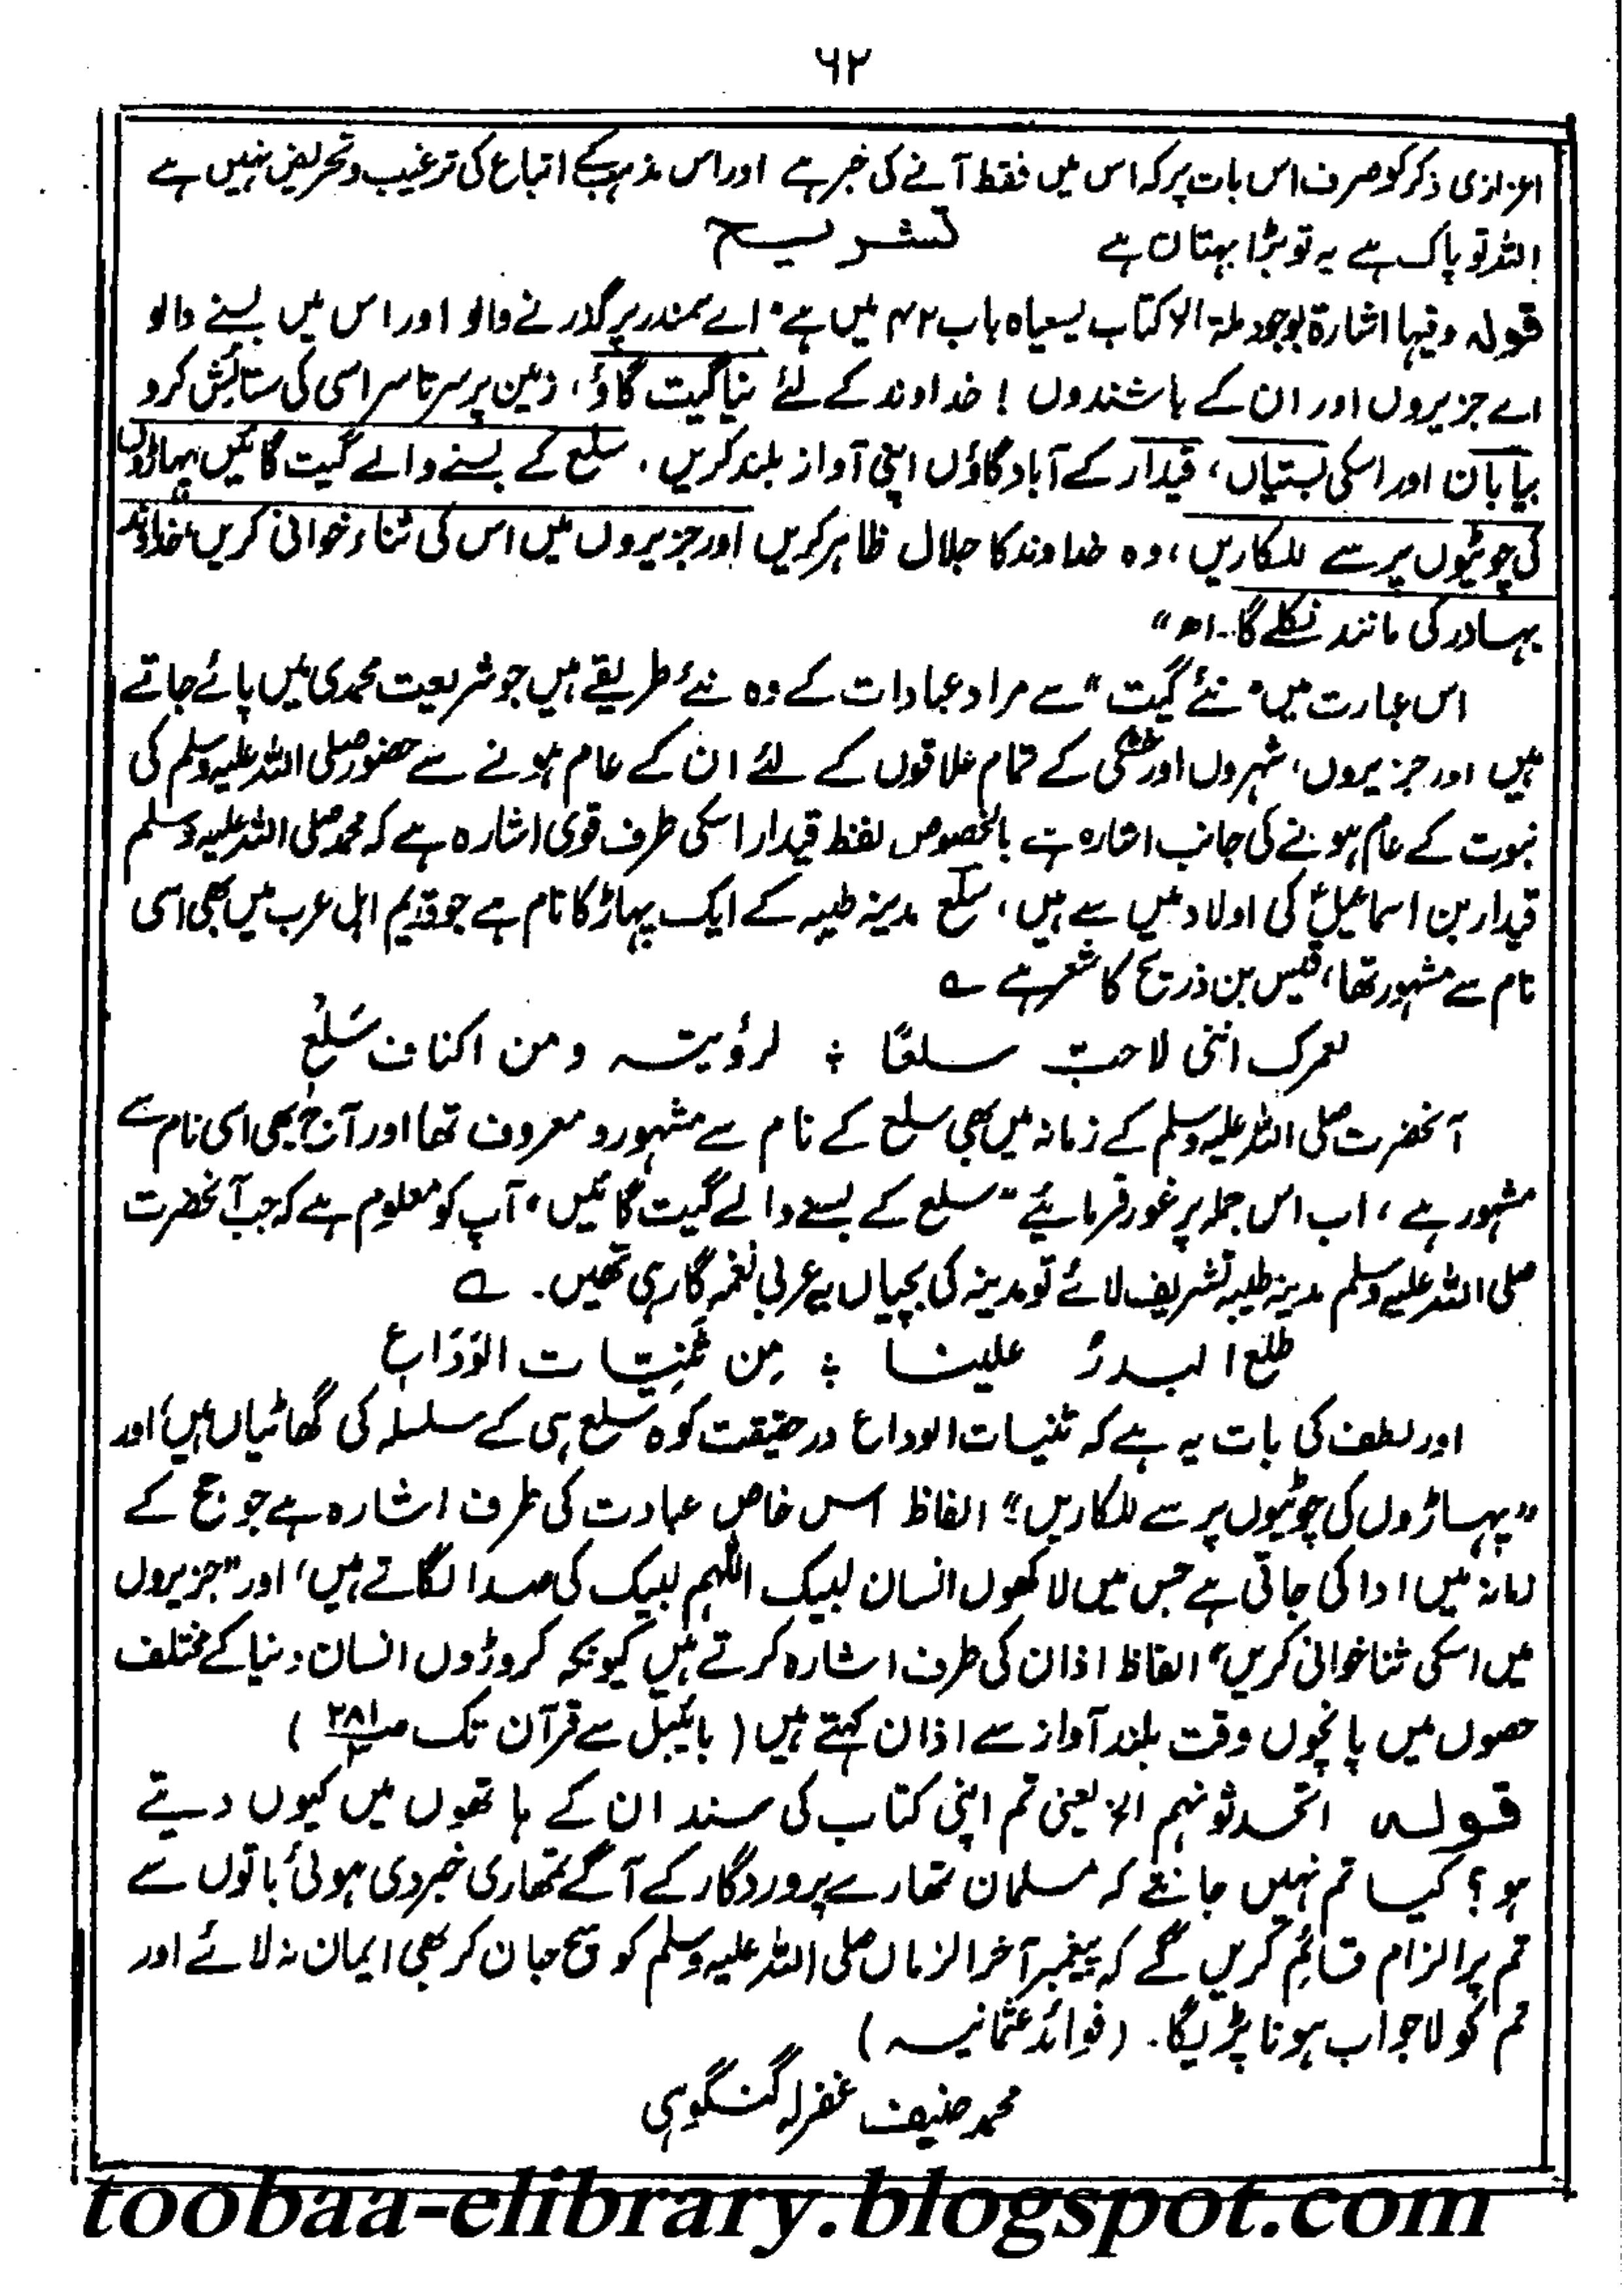 ٦٢
اعزازی ذکر کو صرف اس بات پر کہ اس میں فقط آنے کی خبر ہے اور اس مذہب کے اتباع کی ترغیب و تحریض نہیں ہے
اللہ تو پاک ہے یہ تو بڑا بہتان ہے تشریح
قولہ وفیہا اشارة بوجود ملة الخ کتاب یسعیاہ باب ۴۲ میں ہے "اے سمندر پر گذرنے والو اور اس میں بسنے والو
اے جزیروں اور ان کے باشندوں ! خداوند کے لئے نیا گیت گاؤ، زمین پر سرتاسر اسی کی ستائش کرو
بیابان اور اسکی بستیاں، قیدار کے آباد گاؤں اپنی آواز بلند کریں، سلع کے بسنے والے گیت گائیں پہاڑوں
کی چوٹیوں پر سے للکاریں، وہ خداوند کا جلال ظاہر کریں اور جزیروں میں اس کی ثناء خوانی کریں، خداوند
بہادر کی مانند نکلے گا۔ اھ"
اس عبارت میں "نئے گیت" سے مراد عبادات کے وہ نئے طریقے ہیں جو شریعت محمدی میں پائے جاتے
ہیں اور جزیروں، شہروں اور خشکی کے تمام علاقوں کے لئے ان کے عام ہونے سے حضور صلی اللہ علیہ وسلم کی
نبوت کے عام ہونے کی جانب اشارہ ہے بالخصوص لفظ قیدار اسکی طرف قوی اشارہ ہے کہ محمد صلی اللہ علیہ وسلم
قیدار بن اسماعیلؑ کی اولاد میں سے ہیں، سلع مدینہ طیبہ کے ایک پہاڑ کا نام ہے جو قدیم اہل عرب میں بھی اسی
نام سے مشہور تھا، قیس بن ذریح کا شعر ہے ؎
لعمرک اننی لاحبّ سلعًا ؞ لرؤیتہ ومن اکناف سَلْعٖ
آنحضرت صلی اللہ علیہ وسلم کے زمانہ میں بھی سلع کے نام سے مشہور و معروف تھا اور آج بھی اسی نام سے
مشہور ہے، اب اس جملہ پر غور فرمائیے "سلع کے بسنے والے گیت گائیں، آپ کو معلوم ہے کہ جب آنحضرت
صلی اللہ علیہ وسلم مدینہ طیبہ تشریف لائے تو مدینہ کی بچیاں یہ عربی نغمہ گا رہی تھیں۔ ؎
طلع البدرُ علینا ؞ مِن ثَنِیّات الوَدَاعِ
اور لطف کی بات یہ ہے کہ ثنیات الوداع در حقیقت کوہ سلع ہی کے سلسلہ کی گھاٹیاں ہیں، اور
"پہاڑوں کی چوٹیوں پر سے للکاریں" الفاظ اس خاص عبادت کی طرف اشارہ ہے جو حج کے
زمانہ میں ادا کی جاتی ہے جس میں لاکھوں انسان لبیک اللہم لبیک کی صدا لگاتے ہیں، اور "جزیروں
میں اسکی ثنا خوانی کریں" الفاظ اذان کی طرف اشارہ کرتے ہیں کیونکہ کروڑوں انسان دنیا کے مختلف
حصوں میں پانچوں وقت بلند آواز سے اذان کہتے ہیں (بائیبل سے قرآن تک صـ۲۸۱/۳)
قولہ اتحدثونہم الخ یعنی تم اپنی کتاب کی سند ان کے ہاتھوں میں کیوں دیتے
ہو؟ کیا تم نہیں جانتے کہ مسلمان تمھارے پروردگار کے آگے تمھاری خبر دی ہوئی باتوں سے
تم پر الزام قائم کریں گے کہ پیغمبر آخر الزماں صلی اللہ علیہ وسلم کو سچ جان کر بھی ایمان نہ لائے اور
تم کو لاجواب ہونا پڑیگا۔ (فوائد عثمانیہ)
محمد حنیف غفرلہ گنگوہی
toobaa-elibrary.blogspot.com